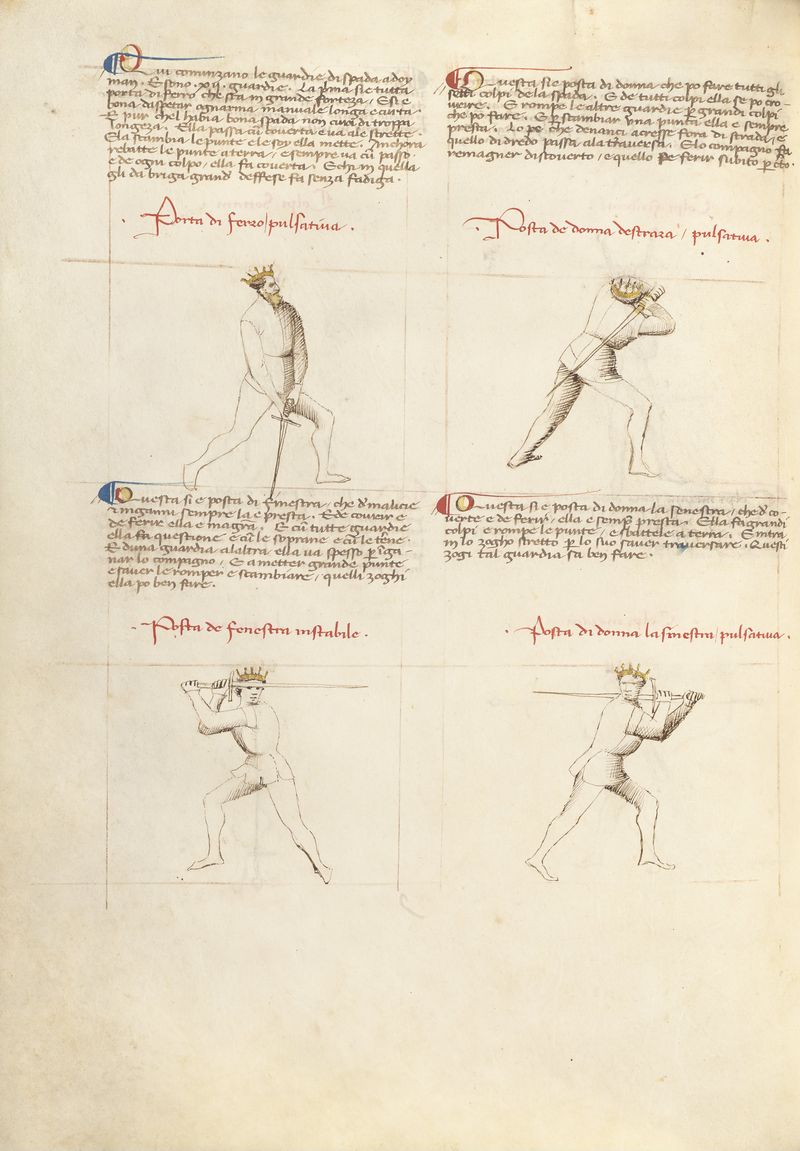 Qui comenzano le guardie di spada a doy
man. E sono xij guardie. La p̃ma sie tutta
porta di ferro, che sta in grande forteza / E si e
bona di spetar ognarma manuale longa e curta.
E pur chel habia bona spada non cura di troppa
longeza. Ella passa cũ coverta e va ale strette.
E la scambia le punte e le soy ella mette. Anchora
rebatte le punte a terra / e sempre va cũ passo
e de ogni colpo / ella fa coverta. E chi in quella
gli da briga grand' deffese fa senza fadiga.
. Porta di ferro / pulsativa .
Questa sie posta di donna che po fare tutti gli
setti colpi de la spada. E de tutti colpi ella se po cro-
vrire. E rompe le altre guardie p̱ grandi colpi
che po fare. E p̱ scambiar una punta ella e sempre
presta. Lo pe che denanci acresse fora di strada / e
quello di dredo passa ala traversa. E lo compagno fa
remagner discoverto / e quello pò ferir subito p̱ c̃to.
. Posta de donna destraza / pulsativa .
Questa si e posta di finestra / che d' malicie
e ingani sempre la e presta. E de covrir e
de ferir ella e magistra. E cũ tutte guardie
ella fa questione e cũ le soprane e cũ le terrene.
E d'una guardia a laltra ella va spesso p̱ inga-
nar lo compagno / E a metter grande punte
e saverle romper e scambiare / quelli zoghi
ella po ben fare.
. Posta de fenestra instabile .
Questa si e posta di donna la senestra / che d' co-
verte e de ferir / ella e semp̃ presta. Ella fa grandi
colpi e rompe le punte / e sbattele a terra. E intra
in lo zogho stretto p̱ lo suo saver traversare. Questi
zogi tal guardia sa ben fare.
. Posta di donna la sinestra / pulsativa .